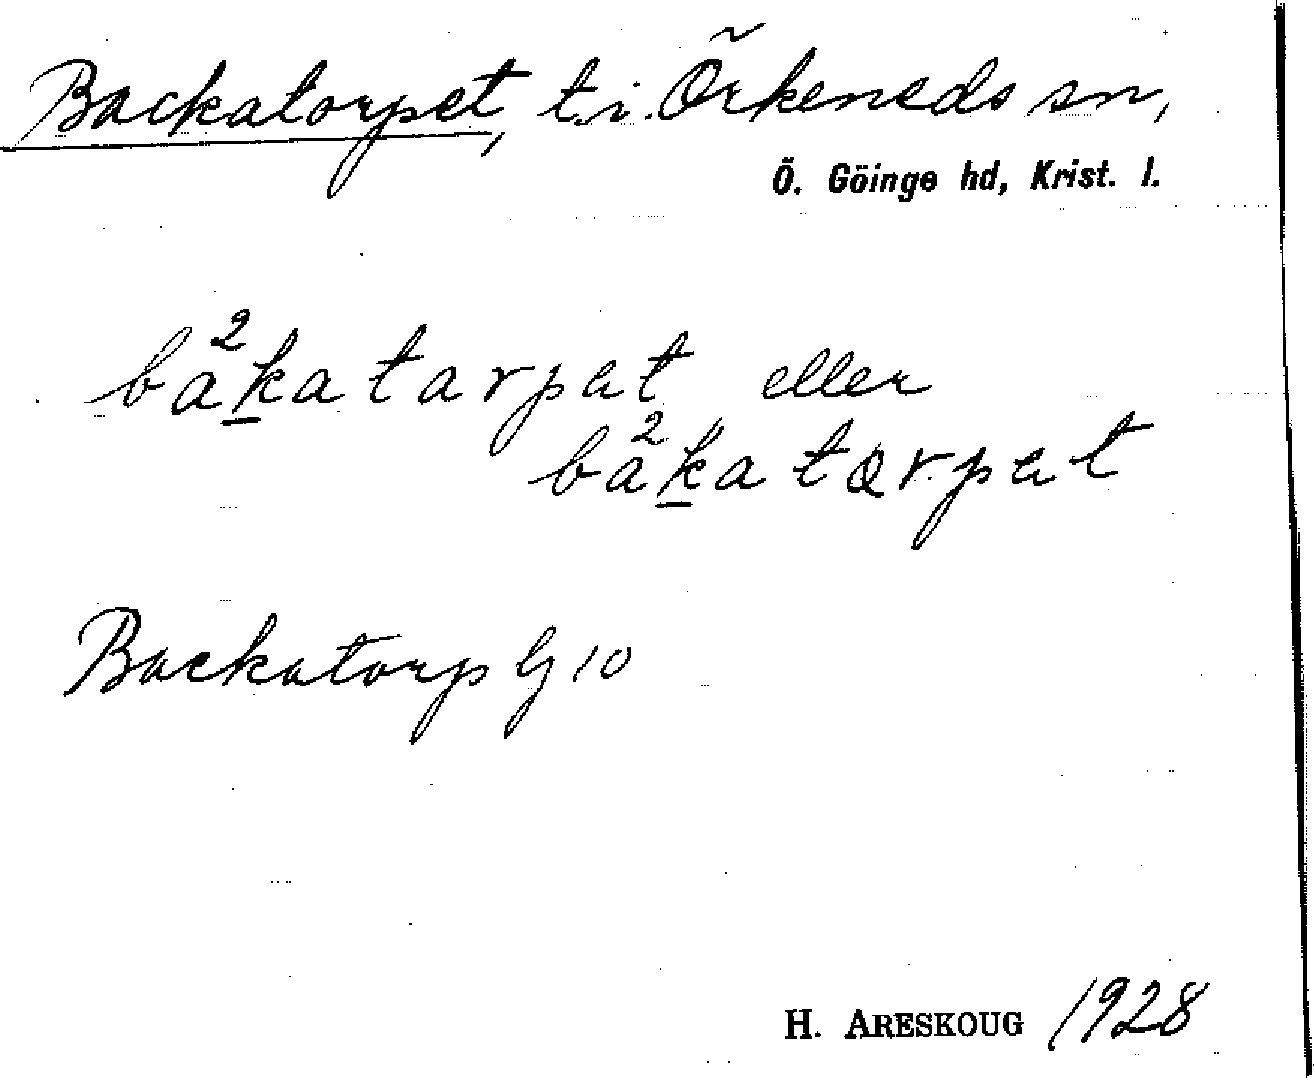 Backatorpet, t. i. Örkeneds sn,
Ö. Göinge hd, Krist. l.
ba²katarpat eller
ba²katɑrpat
Backatorp G 10
H. ARESKOUG 1928